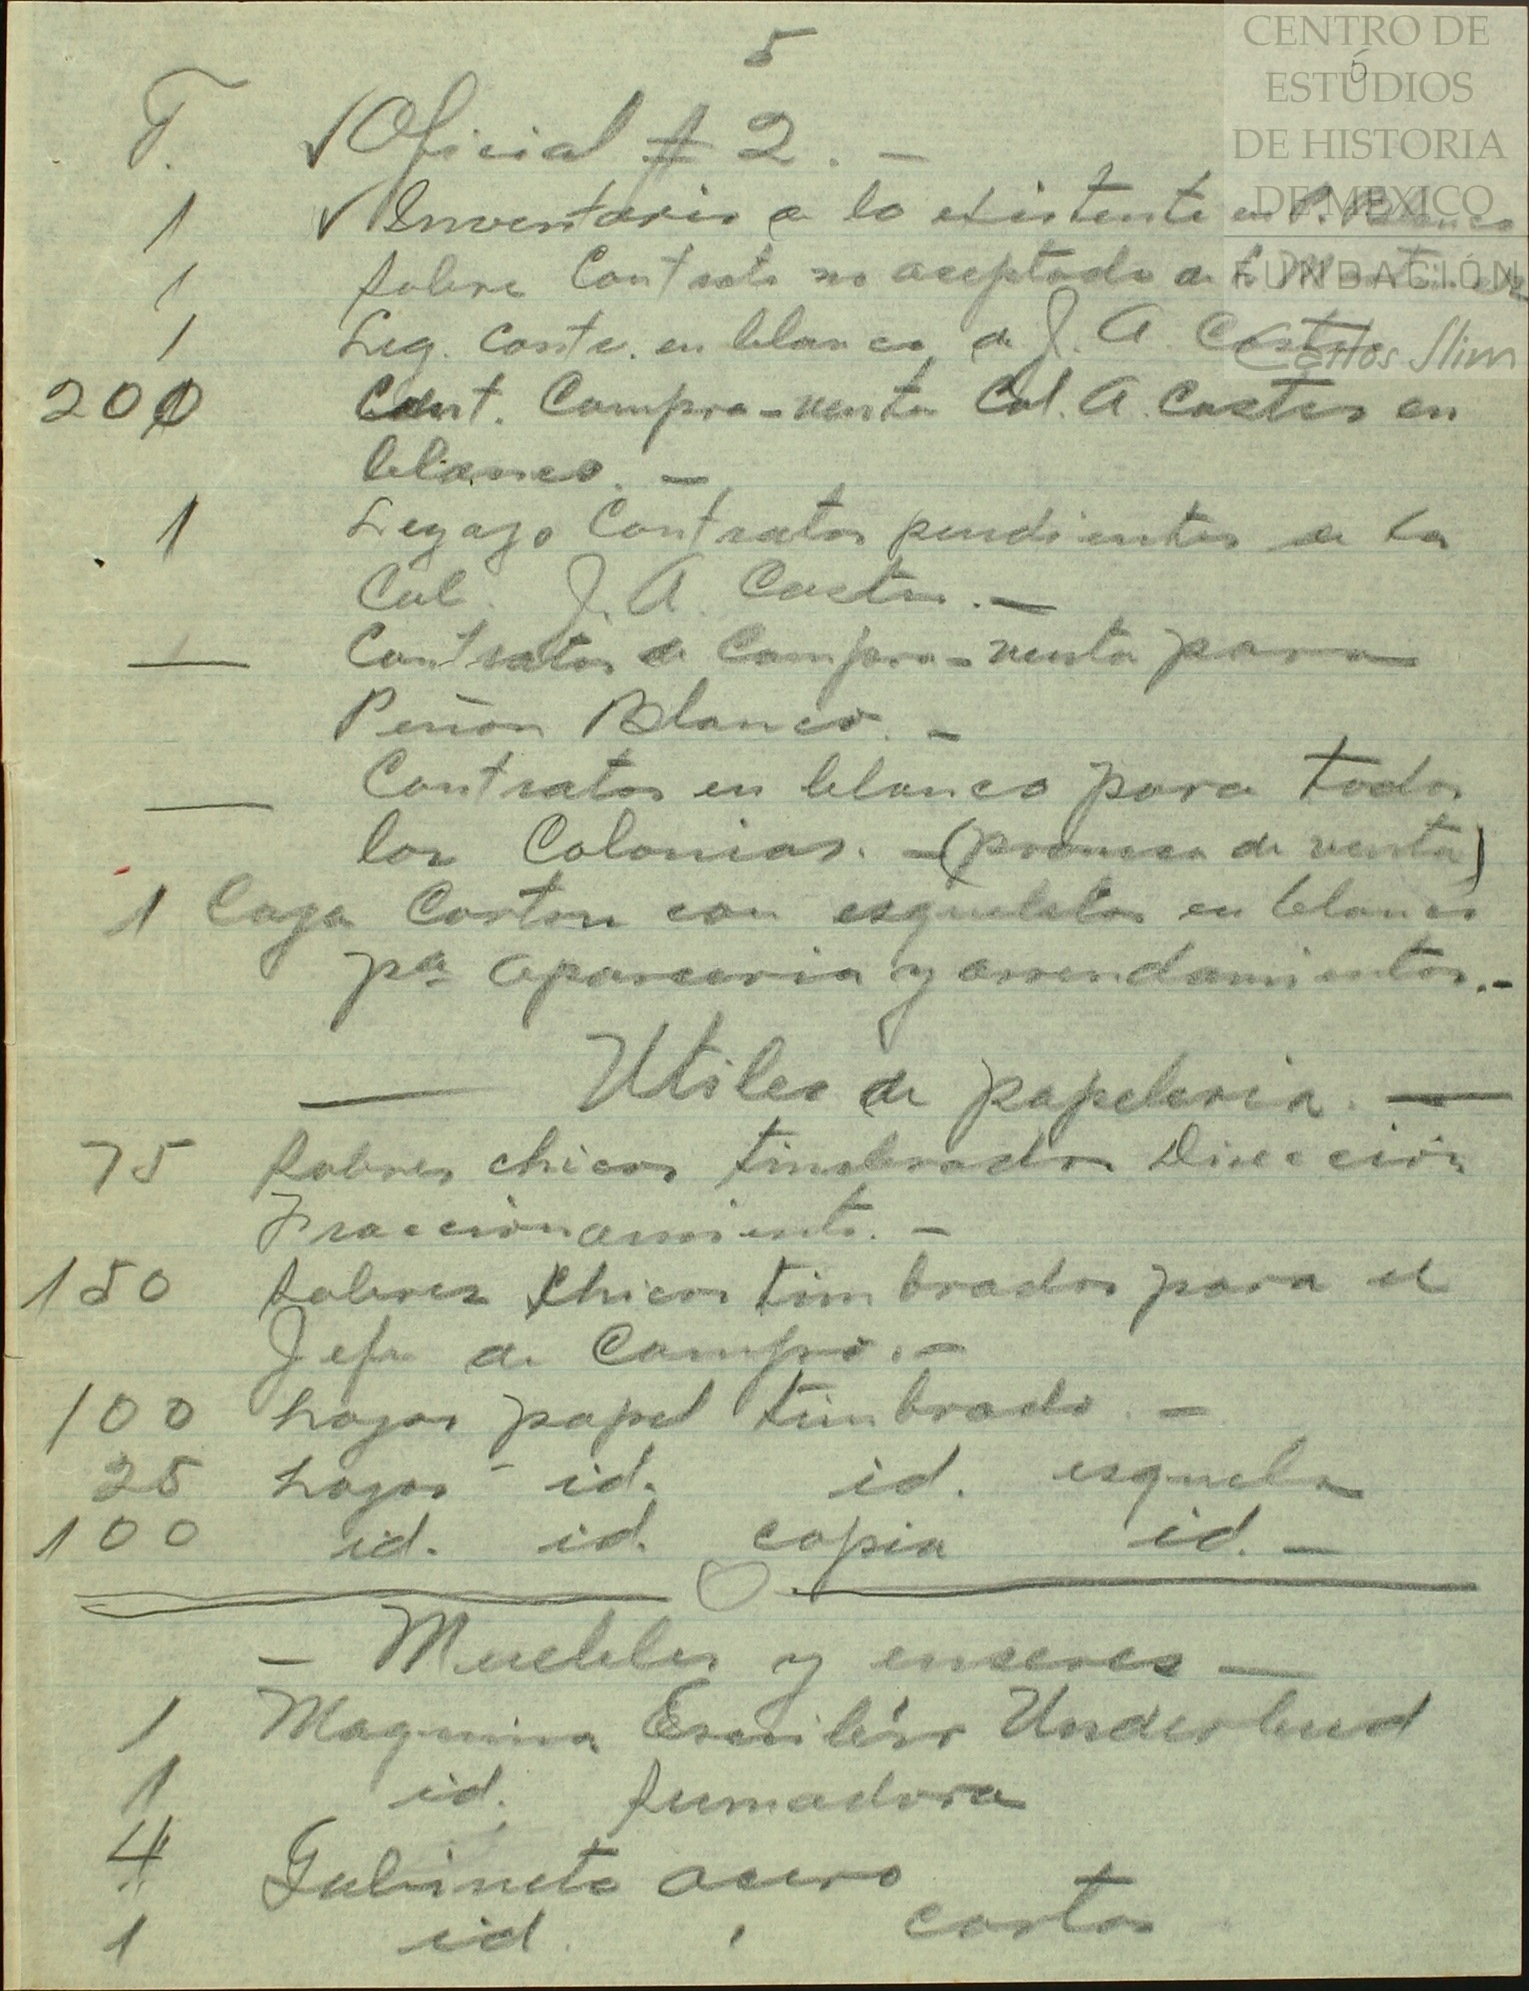 5
CENTRO DE
ESTUDIOS
DE HISTORIA
DE MEXICO
FUNDACIÓN
Carlos Slim
6
T. ✓Oficial # 2. —
1 ✓Inventario a lo existente en P. Blanco
1 Sobre Contrato no aceptado de
1 Leg. Conts. en blanco de J. A. Castro
200 Cont. Compra-venta Col. A. Castro en
blanco. —
1 Legajo Contratos pendientes de la
Col. J. A. Castro. —
— Contratos de Compra-venta para
Peñon Blanco. —
— Contratos en blanco para todas
las Colonias. — (promesa de venta)
1 Caja Carton con esqueletos en blanco
pa aparceria y arrendamientos. —
— Utiles de papeleria. —
75 Sobres chicos timbrados Dirección
Fraccionamiento. —
150 Sobres Chicos timbrados para el
Jefe de Campo. —
100 hojas papel timbrado. —
25 hojas id. id. esquela
100 id. id. copia id. —
— Muebles y enseres —
1 Maquina Escribir Underbud
1 id. sumadora
4 Gabinete acero
1 id. , cartas